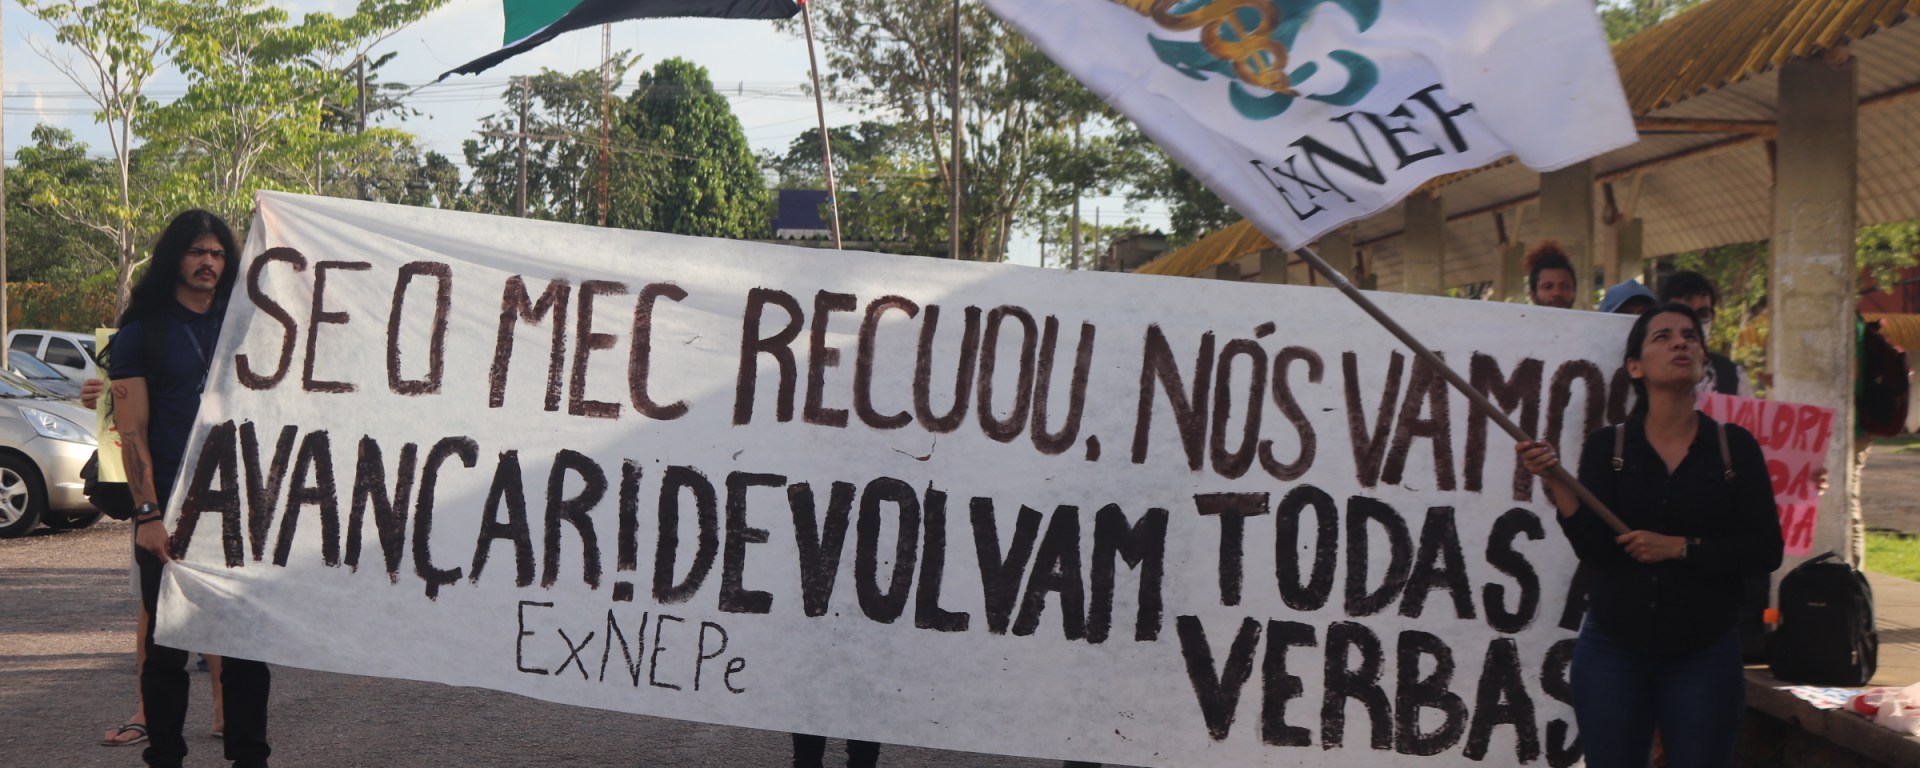 ExNEP
SE O MEC RECUOU, NÓS VAMOS
AVANÇAR! DEVOLVAM TODAS AS
VERBAS
ExNEPe
VALORI